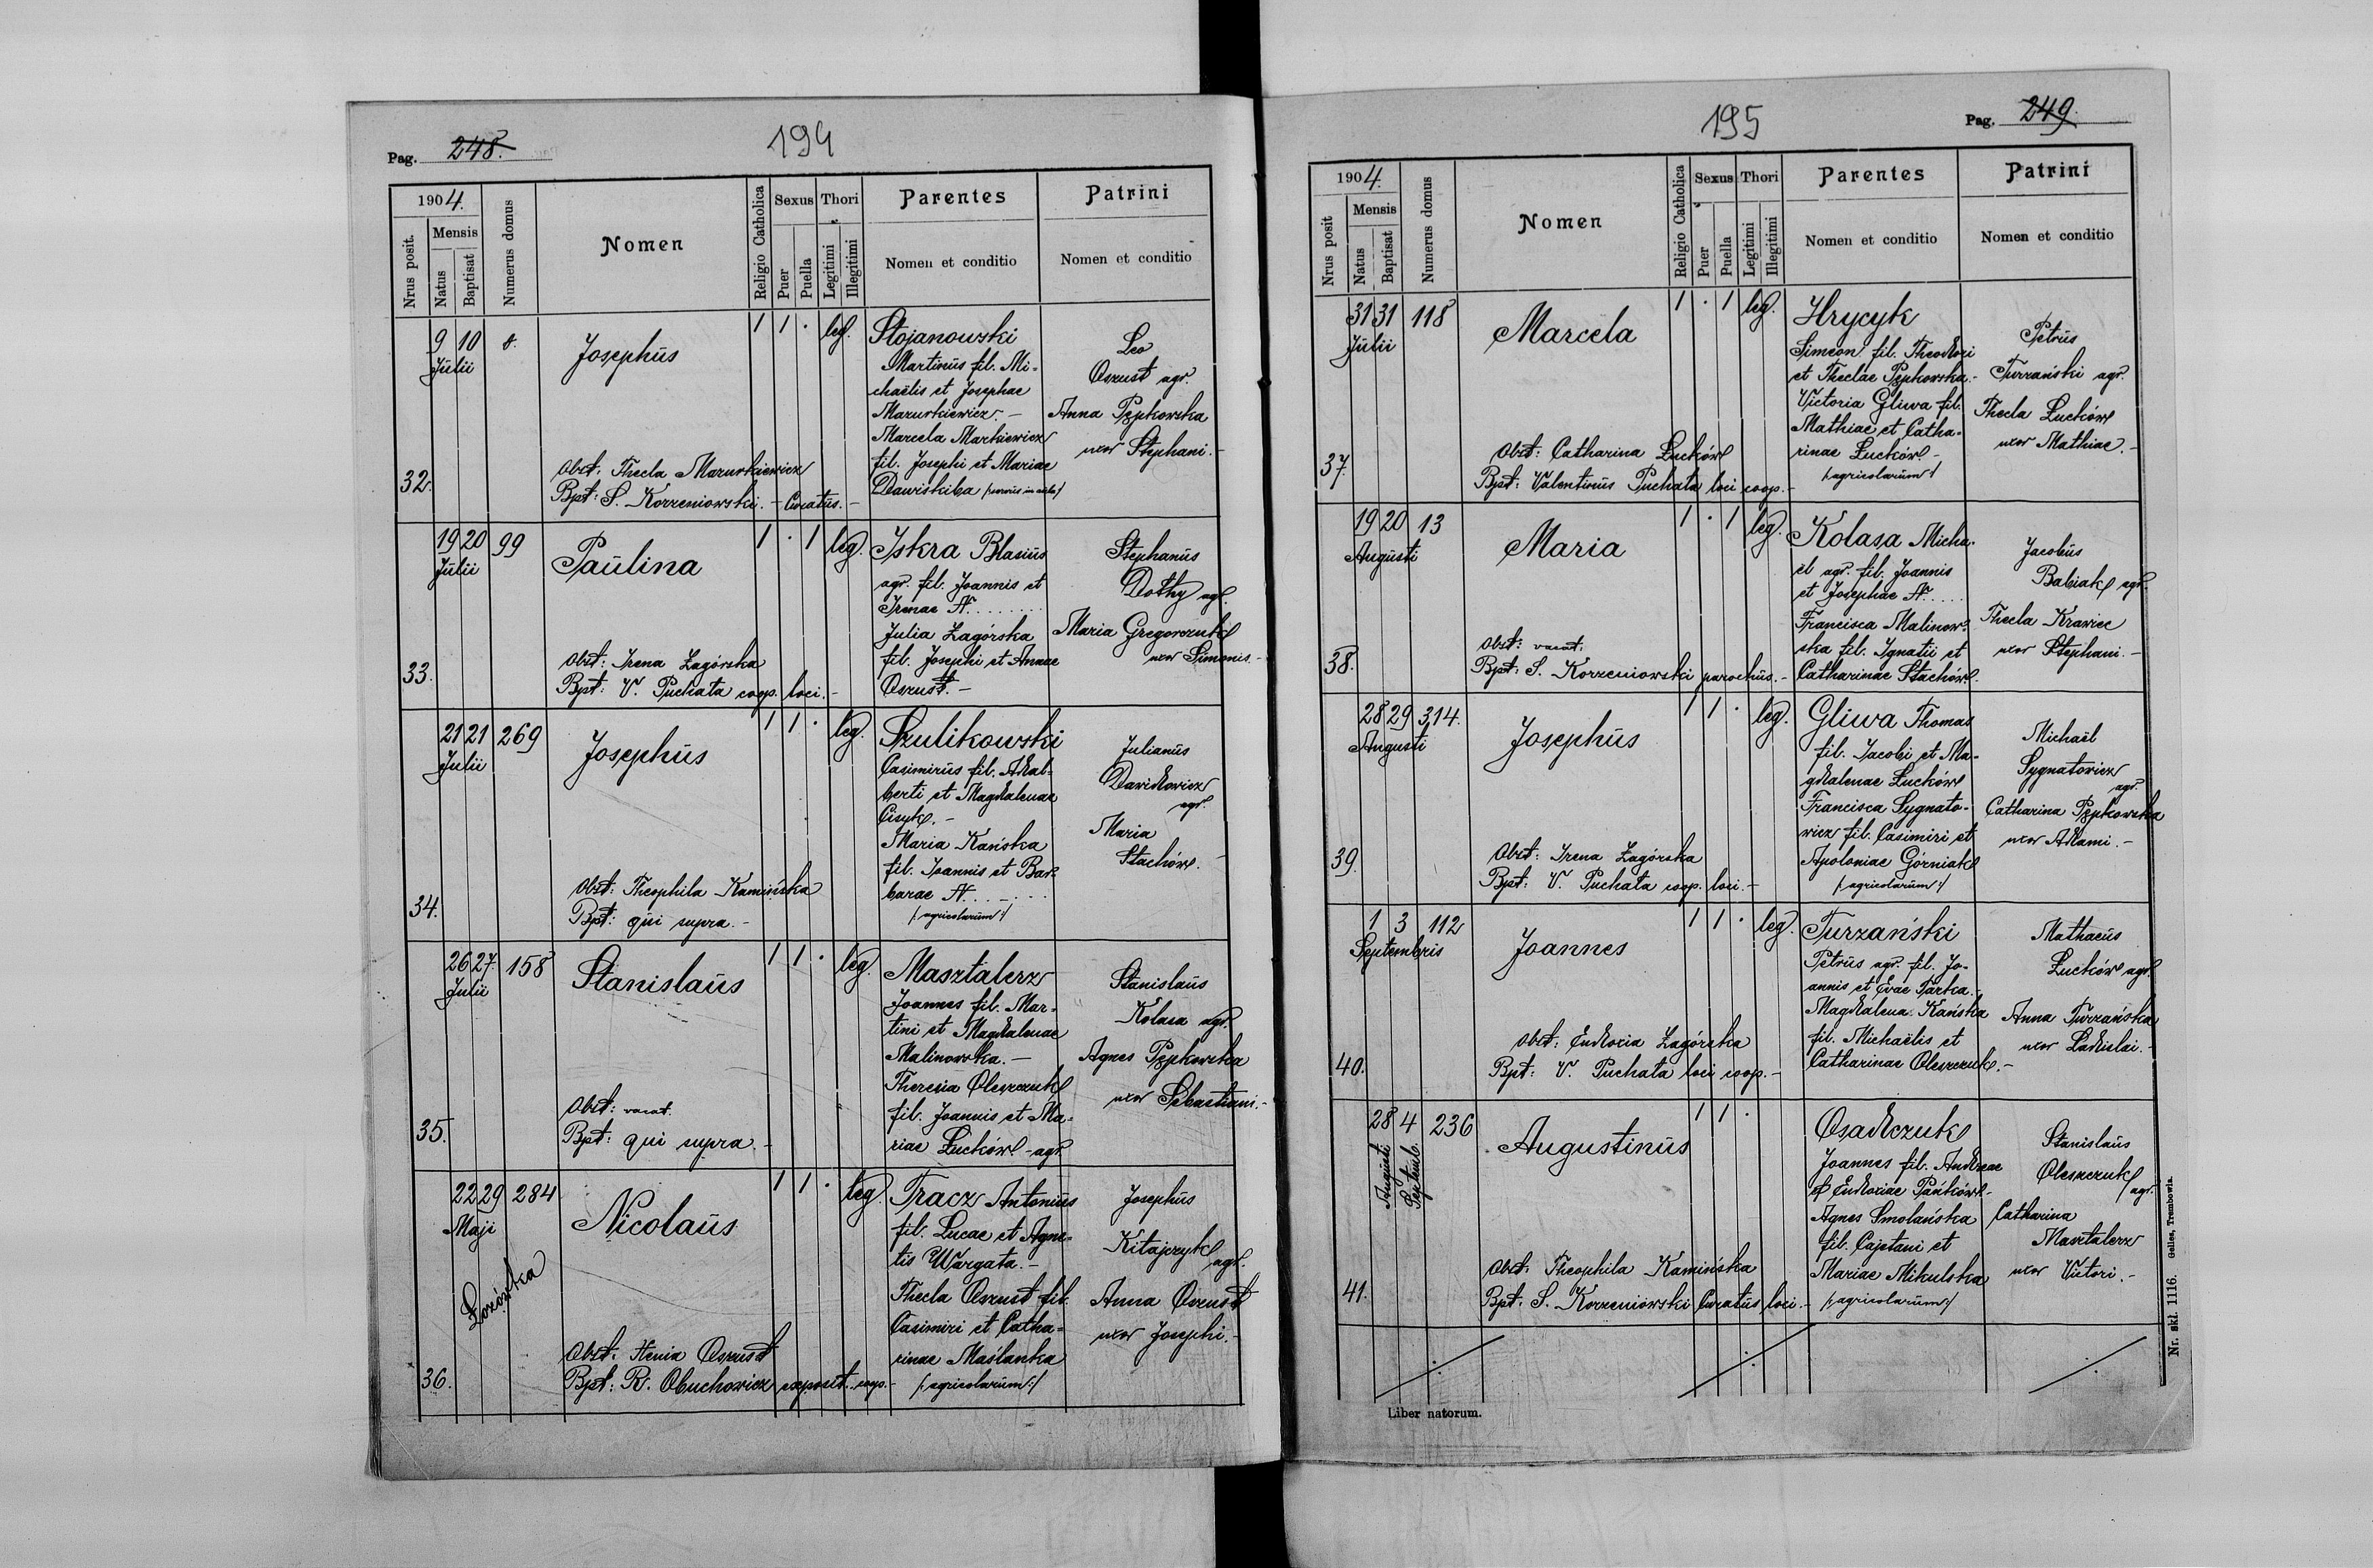 Pag. 248.
194
1904.
Nrus posit.
Mensis
Natus
Baptisat
Numerus domus
Nomen
Religio Catholica
Sexus
Puer
Puella
Thori
Legitimi
Illegitimi
Parentes
Nomen et conditio
Patrini
Nomen et conditio
32.
9 10 8.
Julii
Josephus
1 1 · leg.
Obst: Thecla Mazurkiewicz
Bpt: S. Korzeniowski. - Curatus. -
Stojanowski
Martinus fil. Mi-
chaëlis et Josephae
Mazurkiewicz. -
Marcela Markiewicz
fil. Josephi et Mariae
Leo
Oszust agr.
Anna Pępkowska
uxor Stephani. -
33.
19 20 99
Julii
Paulina
1 · 1 leg.
Obst: Irena Zagórska
Bpt: V. Puchata coop. loci. -
Iskra Blasius
agr. fil. Joannis et
Irenae N. . . . . . . .
Julia Zagórska
fil. Josephi et Annae
Oszust. -
Stephanus
Dothy agr.
Maria Gregorczuk
uxor Simonis. -
34.
21 21 269
Julii
Josephus
1 1 · leg.
Obst: Theophila Kamińska
Bpt: qui supra. -
Szulikowski
Casimirus fil. Adal-
berti et Magdalenae
Cisyk. -
Maria Kańska
fil. Joannis et Bar-
barae N. . . - . . .
/: agricolarum :/
Julianus
Dawidowicz
agr.
Maria
Stachów. -
35.
26 27. 158
Julii
Stanislaus
1 1 · leg.
Obst: vacat.
Bpt: qui supra. -
Masztalerz
Joannes fil. Mar-
tini et Magdalenae
Malinowska. -
Theresia Oleszczuk
fil. Joannis et Ma-
riae Łuków - agr.
Stanislaus
Kolasa agr.
Agnes Pępkowska
uxor Sebastiani. -
36.
22 29 284
Maji
Łozówka
Nicolaus
1 1 · leg.
Obst: Xenia Oszust
Bpt: R. Obuchowicz exposit. coop. -
Tracz Antonius
fil. Lucae et Agne-
tis Wargata. -
Thecla Oszust fil.
Casimiri et Catha-
rinae Maślanka
/: agricolarum :/
Josephus
Kitajczyk agr.
Anna Oszust
uxor Josephi. -
195
Pag. 249.
1904.
Nrus posit
Mensis
Natus
Baptisat
Numerus domus
Nomen
Religio Catholica
Sexus
Puer
Puella
Thori
Legitimi
Illegitimi
Parentes
Nomen et conditio
Patrini
Nomen et conditio
37.
31 31 118
Julii
Marcela
1 · 1 leg.
Obst: Catharina Łucków
Bpt: Valentinus Puchata loci coop. -
Hrycyk
Simeon fil. Theodori
et Theclae Pępkowska. -
Victoria Gliwa fil.
Mathiae et Catha-
rinae Łucków. -
/: agricolarum :/
Petrus
Turzański agr.
Thecla Łucków
uxor Mathiae. -
38.
19 20 13
Augusti
Maria
1 · 1 leg.
Obst: vacat.
Bpt: S. Korzeniowski parochus. -
Kolasa Micha-
el agr. fil. Joannis
et Josephae N. . . . .
Francisca Malinow-
ska fil. Ignatii et
Catharinae Stachów. -
Jacobus
Babiak agr.
Thecla Krawiec
uxor Stephani. -
39.
28 29 314.
Augusti
Josephus
1 1 · leg.
Obst: Irena Zagórska
Bpt: V. Puchata coop. loci. -
Gliwa Thomas
fil. Jacobi et Ma-
gdalenae Łucków
Francisca Sygnato-
wicz fil. Casimiri et
Apoloniae Górniak
/: agricolarum :/
Michaël
Sygnatowicz
agr.
Catharina Pępkowska
uxor Adami. -
40.
1 3 112
Septembris
Joannes
1 1 · leg.
Obst: Eudoxia Zagórska
Bpt: V. Puchata loci coop. -
Turzański
Petrus agr. fil. Jo-
annis et Evae Tarka. -
Magdalena Kańska
fil. Michaëlis et
Catharinae Oleszczuk. -
Mathaeus
Łucków agr.
Anna Turzańska
uxor Ladislai. -
41.
28 4 236
Augusti
Septemb.
Augustinus
1 1 ·
Obst: Theophila Kamińska
Bpt: S. Korzeniowski Curatus loci. -
Osadczuk
Joannes fil. Andreae
et Eudoxiae Pańków -
Agnes Smolańska
fil. Cajetani et
Mariae Mikulska
/: agricolarum :/
Stanislaus
Oleszczuk
agr.
Catharina
Masztalerz
uxor Victori. -
Liber natorum.
Nr. skl. 1116. Gelles, Trembowla.